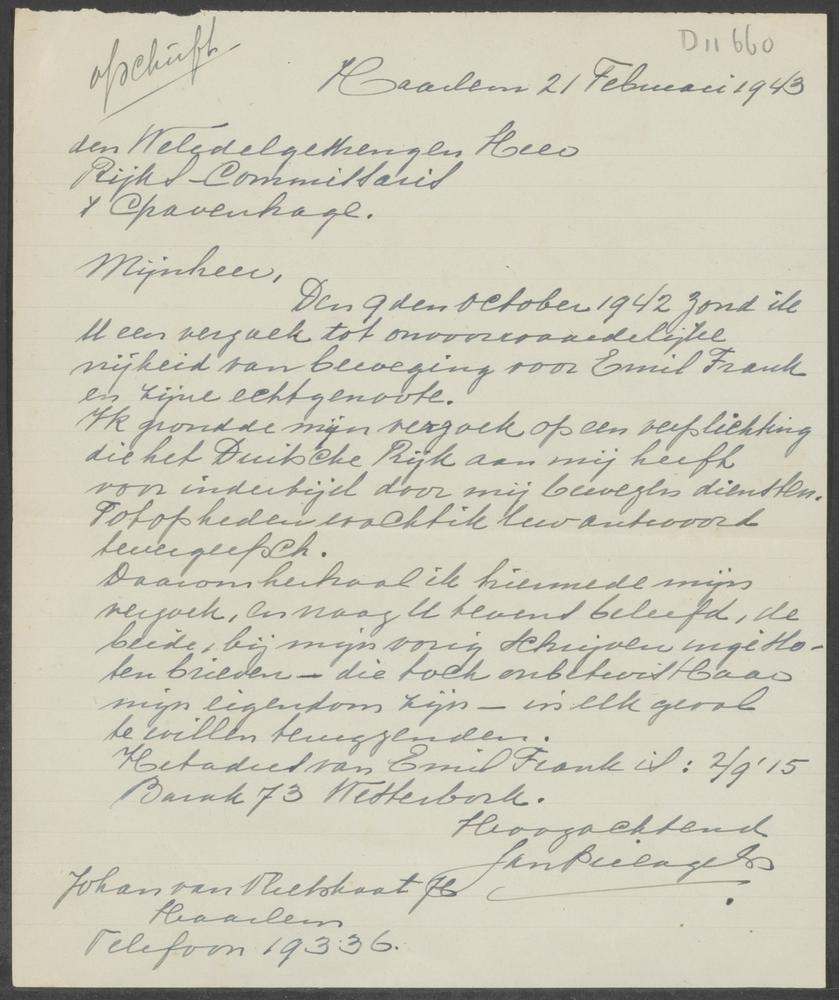 afschrift
D11 660
Haarlem 21 Februari 1943
den Weledelgestrengen Heer
Rijks-Commissaris
's Gravenhage.
Mijnheer,
Den 9den october 1942 zond ik
U een verzoek tot onvoorwaardelijke
vrijheid van beweging voor Emil Frank
en zijne echtgenoote.
Ik grondde mijn verzoek op een verplichting
die het Duitsche Rijk aan mij heeft
voor indertijd door mij bewezen diensten.
Tot op heden wacht ik Uw antwoord
tevergeefsch.
Daarom herhaal ik hiermede mijn
verzoek, en vraag U tevens beleefd, de
beide, bij mijn vorig schrijven ingeslo-
ten brieven — die toch onbetwistbaar
mijn eigendom zijn — in elk geval
te willen terugzenden.
Het adres van Emil Frank is: 2/9'15
Barak 73 Westerbork.
Hoogachtend
Jan Pieragels
Johan van Vlietstraat
Haarlem
Telefoon 19336.